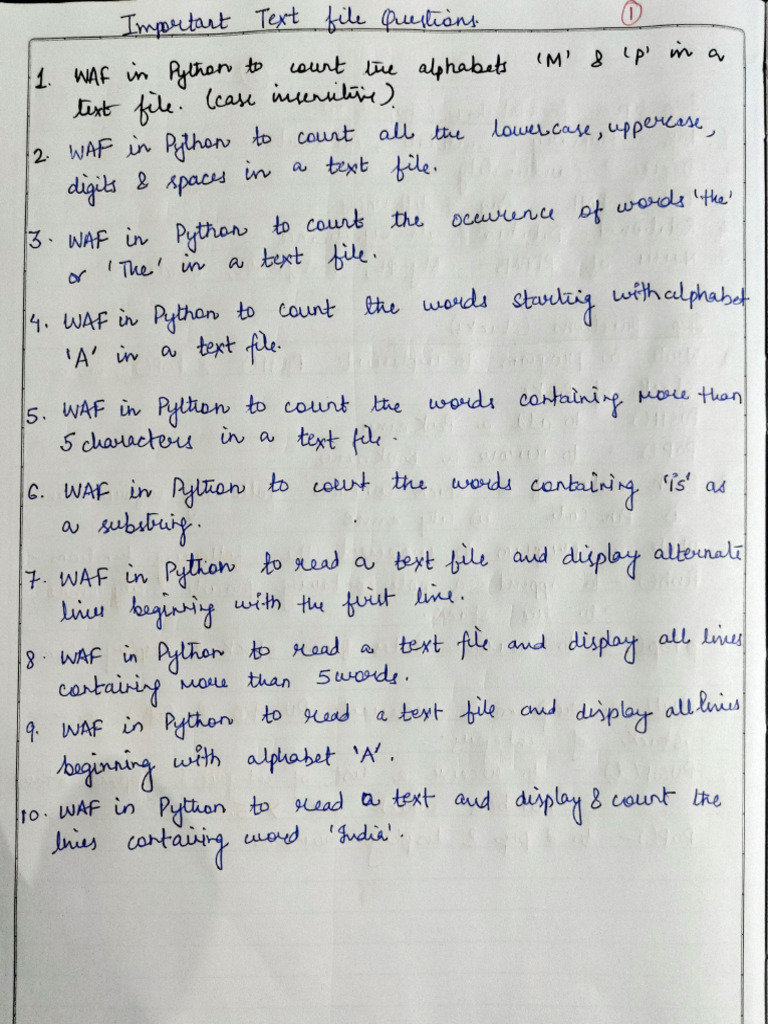 Important Text file Questions.
1
1. WAF in Python to count the alphabets 'M' & 'P' in a
text file. (case insensitive)
2. WAF in Python to count all the lowercase, uppercase,
digits & spaces in a text file.
3. WAF in Python to counts the occurence of words 'the'
or 'The' in a text file.
4. WAF in Python to count the words starting with alphabet
'A' in a text file.
5. WAF in Python to count the words containing more than
5 characters in a text file.
6. WAF in Python to count the words containing 'is' as
a substring.
7. WAF in Python to read a text file and display alternate
lines beginning with the first line.
8. WAF in Python to read a text file and display all lines
containing more than 5 words.
9. WAF in Python to read a text file and display all lines
beginning with alphabet 'A'.
10. WAF in Python to read a text and display & count the
lines containing word 'India'.